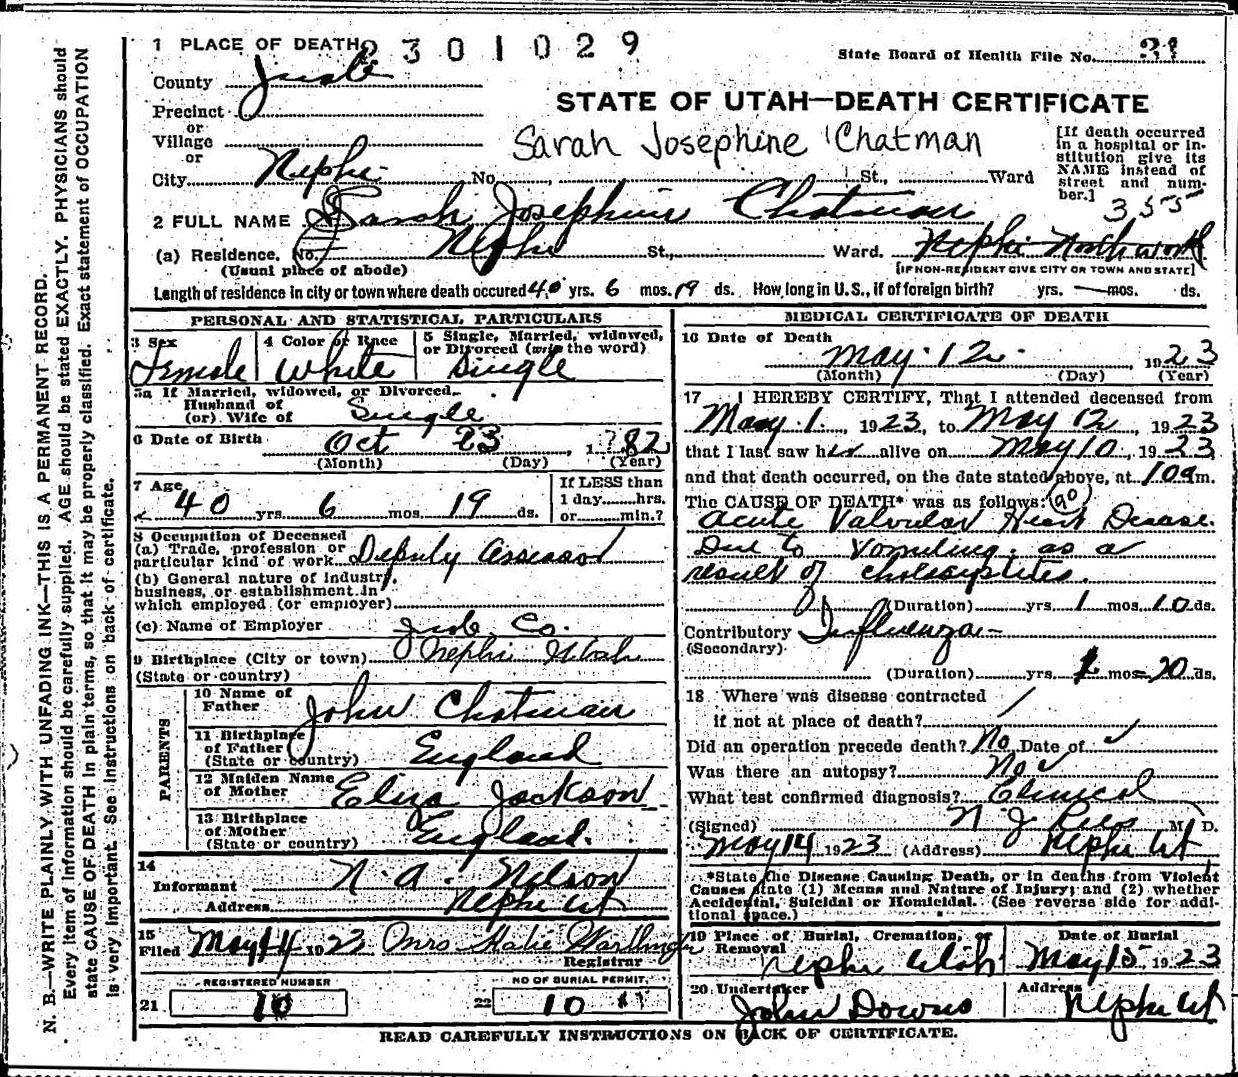 1 PLACE OF DEATH
2301029
State Board of Health File No. 31
County Juab
Precinct
or
Village
or
City Nephi No. St., Ward
STATE OF UTAH—DEATH CERTIFICATE
Sarah Josephine Chatman
[If death occurred
in a hospital or in-
stitution give its
NAME instead of
street and num-
ber.]
355
2 FULL NAME Sarah Josephine Chatman
(a) Residence. No. Nephi St., Ward. Nephi North ward
(Usual place of abode)
[IF NON-RESIDENT GIVE CITY OR TOWN AND STATE]
Length of residence in city or town where death occured 40 yrs. 6 mos. 19 ds. How long in U.S., if of foreign birth? yrs. mos. ds.
PERSONAL AND STATISTICAL PARTICULARS
3 Sex
Female
4 Color or Race
White
5 Single, Married, widowed,
or Divorced (write the word)
Single
5a If Married, widowed, or Divorced
Husband of
(or) Wife of Single
6 Date of Birth Oct 23, 1882
(Month) (Day) (Year)
7 Age
40 yrs. 6 mos. 19 ds.
If LESS than
1 day hrs.
or min.?
8 Occupation of Deceased
(a) Trade, profession or
particular kind of work Deputy Assessor
(b) General nature of industry,
business, or establishment in
which employed (or employer)
(c) Name of Employer Juab Co.
9 Birthplace (City or town) Nephi Utah
(State or country)
PARENTS
10 Name of
Father John Chatman
11 Birthplace
of Father England
(State or country)
12 Maiden Name
of Mother Eliza Jackson
13 Birthplace
of Mother England.
(State or country)
14
Informant N. A. Nelson
Address Nephi Ut
15
Filed May 14 1923 Mrs Katie
Registrar
REGISTERED NUMBER
21 10
NO OF BURIAL PERMIT.
22 10
MEDICAL CERTIFICATE OF DEATH
16 Date of Death
May 12 1923
(Month) (Day) (Year)
17 I HEREBY CERTIFY, That I attended deceased from
May 1, 1923, to May 12, 1923
that I last saw her alive on May 10, 1923
and that death occurred, on the date stated above, at 10 a m.
The CAUSE OF DEATH* was as follows: (90)
Acute Valvular Heart Disease.
Due to Vomiting, as a
result of
(Duration) yrs. 1 mos. 10 ds.
Contributory Influenza
(Secondary)
(Duration) yrs. mos. 20 ds.
18 Where was disease contracted
if not at place of death?
Did an operation precede death? No Date of
Was there an autopsy? No
What test confirmed diagnosis? Clinical
(Signed) N J Rees M. D.
May 14 1923 (Address) Nephi Ut
*State the Disease Causing Death, or in deaths from Violent
Causes state (1) Means and Nature of Injury; and (2) whether
Accidental, Suicidal or Homicidal. (See reverse side for addi-
tional space.)
19 Place of Burial, Cremation, or
Removal
Nephi Utah
Date of Burial
May 15 1923
20 Undertaker
John Downs
Address
Nephi Ut
READ CAREFULLY INSTRUCTIONS ON BACK OF CERTIFICATE.
N. B.—WRITE PLAINLY WITH UNFADING INK—THIS IS A PERMANENT RECORD.
Every item of information should be carefully supplied. AGE should be stated EXACTLY. PHYSICIANS should
state CAUSE OF DEATH in plain terms, so that it may be properly classified. Exact statement of OCCUPATION
is very important. See instructions on back of certificate.